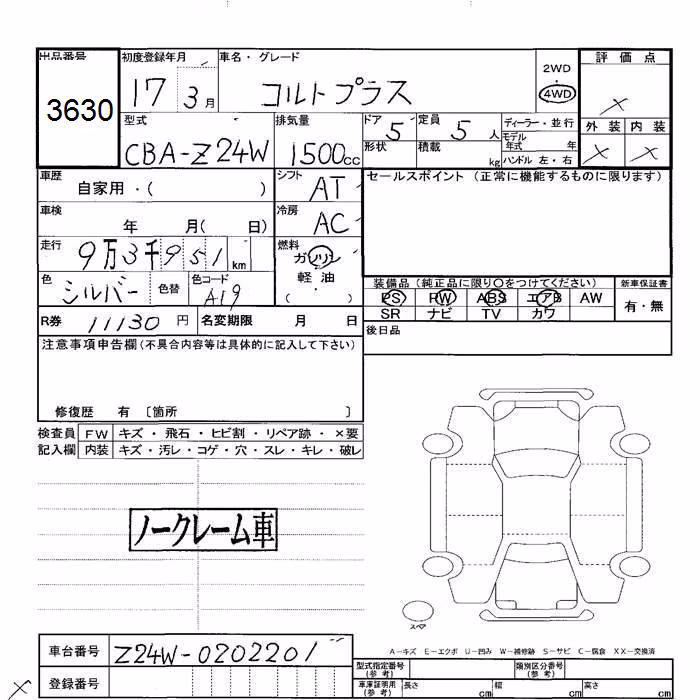 出品番号 初度登録年月 車名・グレード 評価点
3630 17 3月 コルトプラス 2WD ・ 4WD ×
型式 排気量 ドア 5 定員 5 人 ディーラー・並行 外装 内装
CBA-Z24W 1500cc 形状 積載 kg モデル年式 年 × ×
ハンドル 左・右
車歴 自家用・( ) シフト AT セールスポイント (正常に機能するものに限ります)
車検 年 月( 日) 冷房 AC
走行 9万3千951 km 燃料 ガソリン
軽油
( )
色 シルバー 色替 色コード A19 装備品 (純正品に限り○をつけてください) 新車保証書
PS PW ABS エアB AW 有・無
SR ナビ TV カワ
R券 11130 円 名変期限 月 日 後日品
注意事項申告欄(不具合内容等は具体的に記入して下さい)
修復歴 有 〔箇所 〕
検査員 FW キズ・飛石・ヒビ割・リペア跡・×要
記入欄 内装 キズ・汚レ・コゲ・穴・スレ・キレ・破レ
ノークレーム車
スペア
A-キズ E-エクボ U-凹み W-補修跡 S-サビ C-腐食 XX-交換済
車台番号 Z24W-0202201
型式指定番号(参考) 類別区分番号(参考)
登録番号 車庫証明用(参考) 長さ cm 幅 cm 高さ cm
×